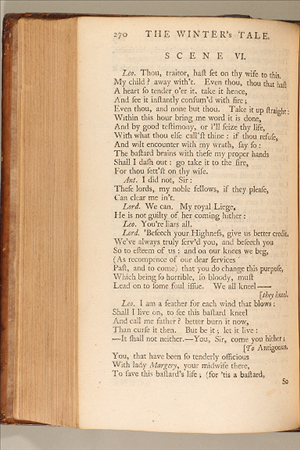 270 THE WINTER's TALE.
SCENE VI.
Leo. Thou, traitor, haſt ſet on thy wife to this.
My child? away with't. Even thou, thou that haſt
A heart ſo tender o'er it, take it hence,
And ſee it inſtantly conſum'd with fire;
Even thou, and none but thou. Take it up ſtraight:
Within this hour bring me word it is done,
And by good teſtimony, or I'll ſeize thy life,
With what thou elſe call'ſt thine: if thou refuſe,
And wilt encounter with my wrath, ſay ſo:
The baſtard brains with theſe my proper hands
Shall I daſh out: go take it to the fire,
For thou ſett'ſt on thy wife.
Ant. I did not, Sir:
Theſe lords, my noble fellows, if they pleaſe,
Can clear me in't.
Lord. We can. My royal Liege,
He is not guilty of her coming hither:
Leo. You're liars all.
Lord. 'Beſeech your Highneſs, give us better credit.
We've always truly ſerv'd you, and beſeech you
So to eſteem of us: and on our knees we beg,
(As recompence of our dear ſervices
Paſt, and to come) that you do change this purpoſe,
Which being ſo horrible, ſo bloody, muſt
Lead on to ſome foul iſſue. We all kneel——
[they kneel.
Leo. I am a feather for each wind that blows:
Shall I live on, to ſee this baſtard kneel
And call me father? better burn it now,
Than curſe it then. But be it; let it live:
—It ſhall not neither.—You, Sir, come you hither;
[To Antigonus.
You, that have been ſo tenderly officious
With lady Margery, your midwife there,
To ſave this baſtard's life; (for 'tis a baſtard,
So